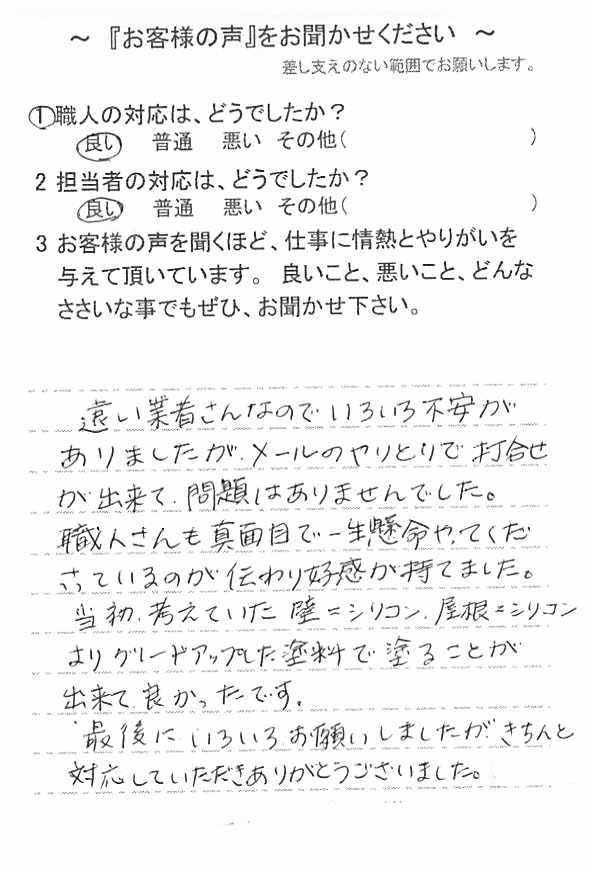 ～ 『お客様の声』をお聞かせください ～
差し支えのない範囲でお願いします。
1 職人の対応は、どうでしたか？
良い 普通 悪い その他( )
2 担当者の対応は、どうでしたか？
良い 普通 悪い その他( )
3 お客様の声を聞くほど、仕事に情熱とやりがいを
与えて頂いています。 良いこと、悪いこと、どんな
ささいな事でもぜひ、お聞かせ下さい。
遠い業者さんなのでいろいろ不安が
ありましたが、メールのやりとりで打合せ
が出来て、問題はありませんでした。
職人さんも真面目で一生懸命やってくだ
さっているのが伝わり好感が持てました。
当初、考えていた 陸＝シリコン、屋根＝シリコン
よりグレードアップした塗料で塗ることが
出来て良かったです。
最後にいろいろお願いしましたがきちんと
対応していただきありがとうございました。